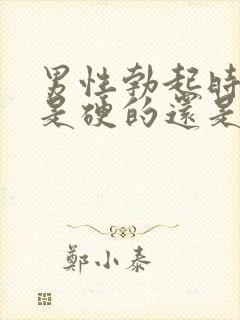 男性勃起時
是硬的還是
鄭小泰